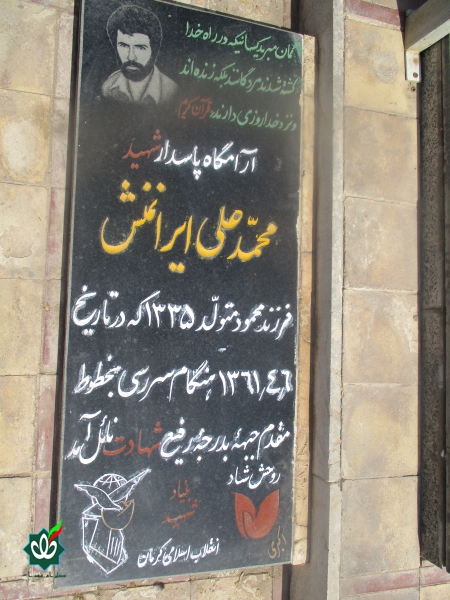 گمان مبرید کسانیکه در راه خدا
کشته شدند مردگانند بلکه زنده اند
و نزد خدا روزی دارند. قرآن کریم
آرامگاه پاسدار شهید
محمّد علی ایرانمنش
فرزند محمود متولّد ۱۳۳۵ که در تاریخ
۱۳۶۱٫۴٫۶ هنگام سرسی بخطوط
مقدم جبهه بدرجه رفیع شهادت نائل آمد
روحش شاد
بنیاد
شهید
انقلاب اسلامی کرمان